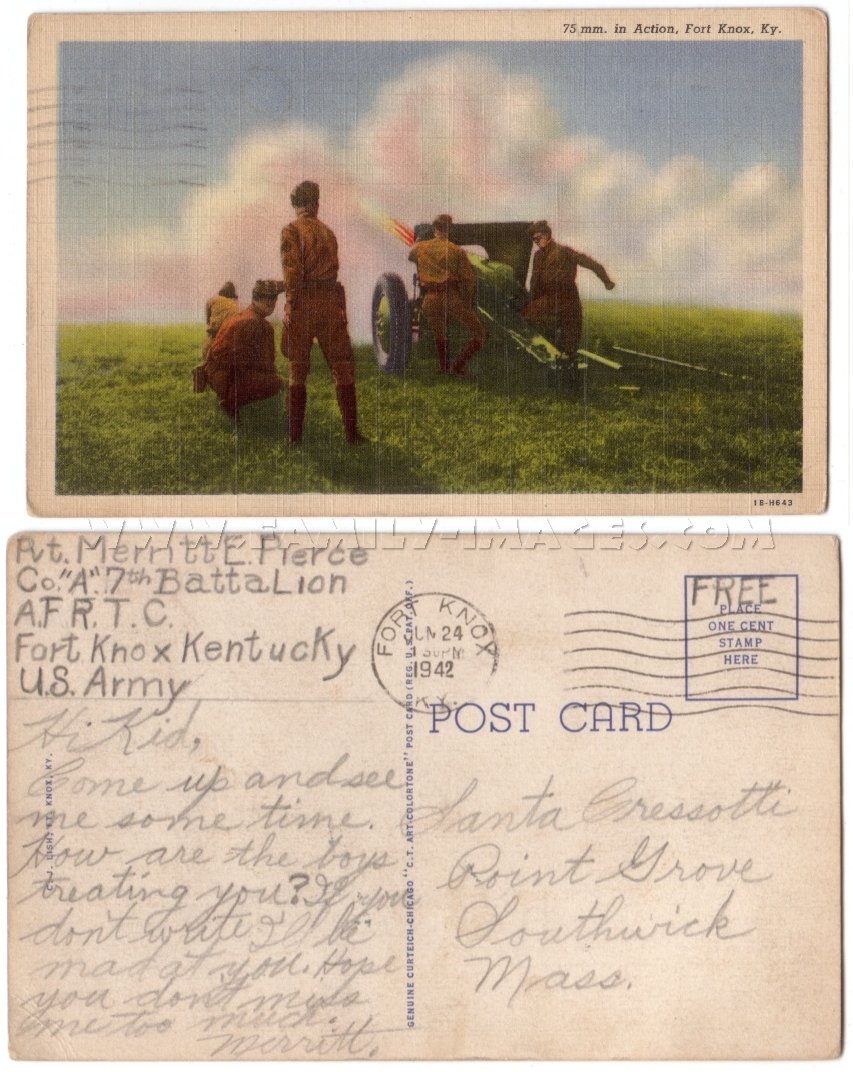 75 mm. in Action, Fort Knox, Ky.
1B-H643
WWW.FAMILY-IMAGES.COM
Pvt. Merritt E. Pierce
Co. "A". 7th Battalion
A.F.R.T.C.
Fort Knox Kentucky
U.S. Army
FORT KNOX
JUN 24
30 PM
1942
KY.
FREE
PLACE
ONE CENT
STAMP
HERE
POST CARD
Hi Kid,
Come up and see
me some time.
How are the boys
treating you? If you
dont write I'll be
mad at you. Hope
you don't miss
me too much.
Merritt.
C. J. LISH, FT. KNOX, KY.
GENUINE CURTEICH-CHICAGO "C.T. ART-COLORTONE" POST CARD (REG. U.S. PAT. OFF.)
Santa Cressotti
Point Grove
Southwick
Mass.